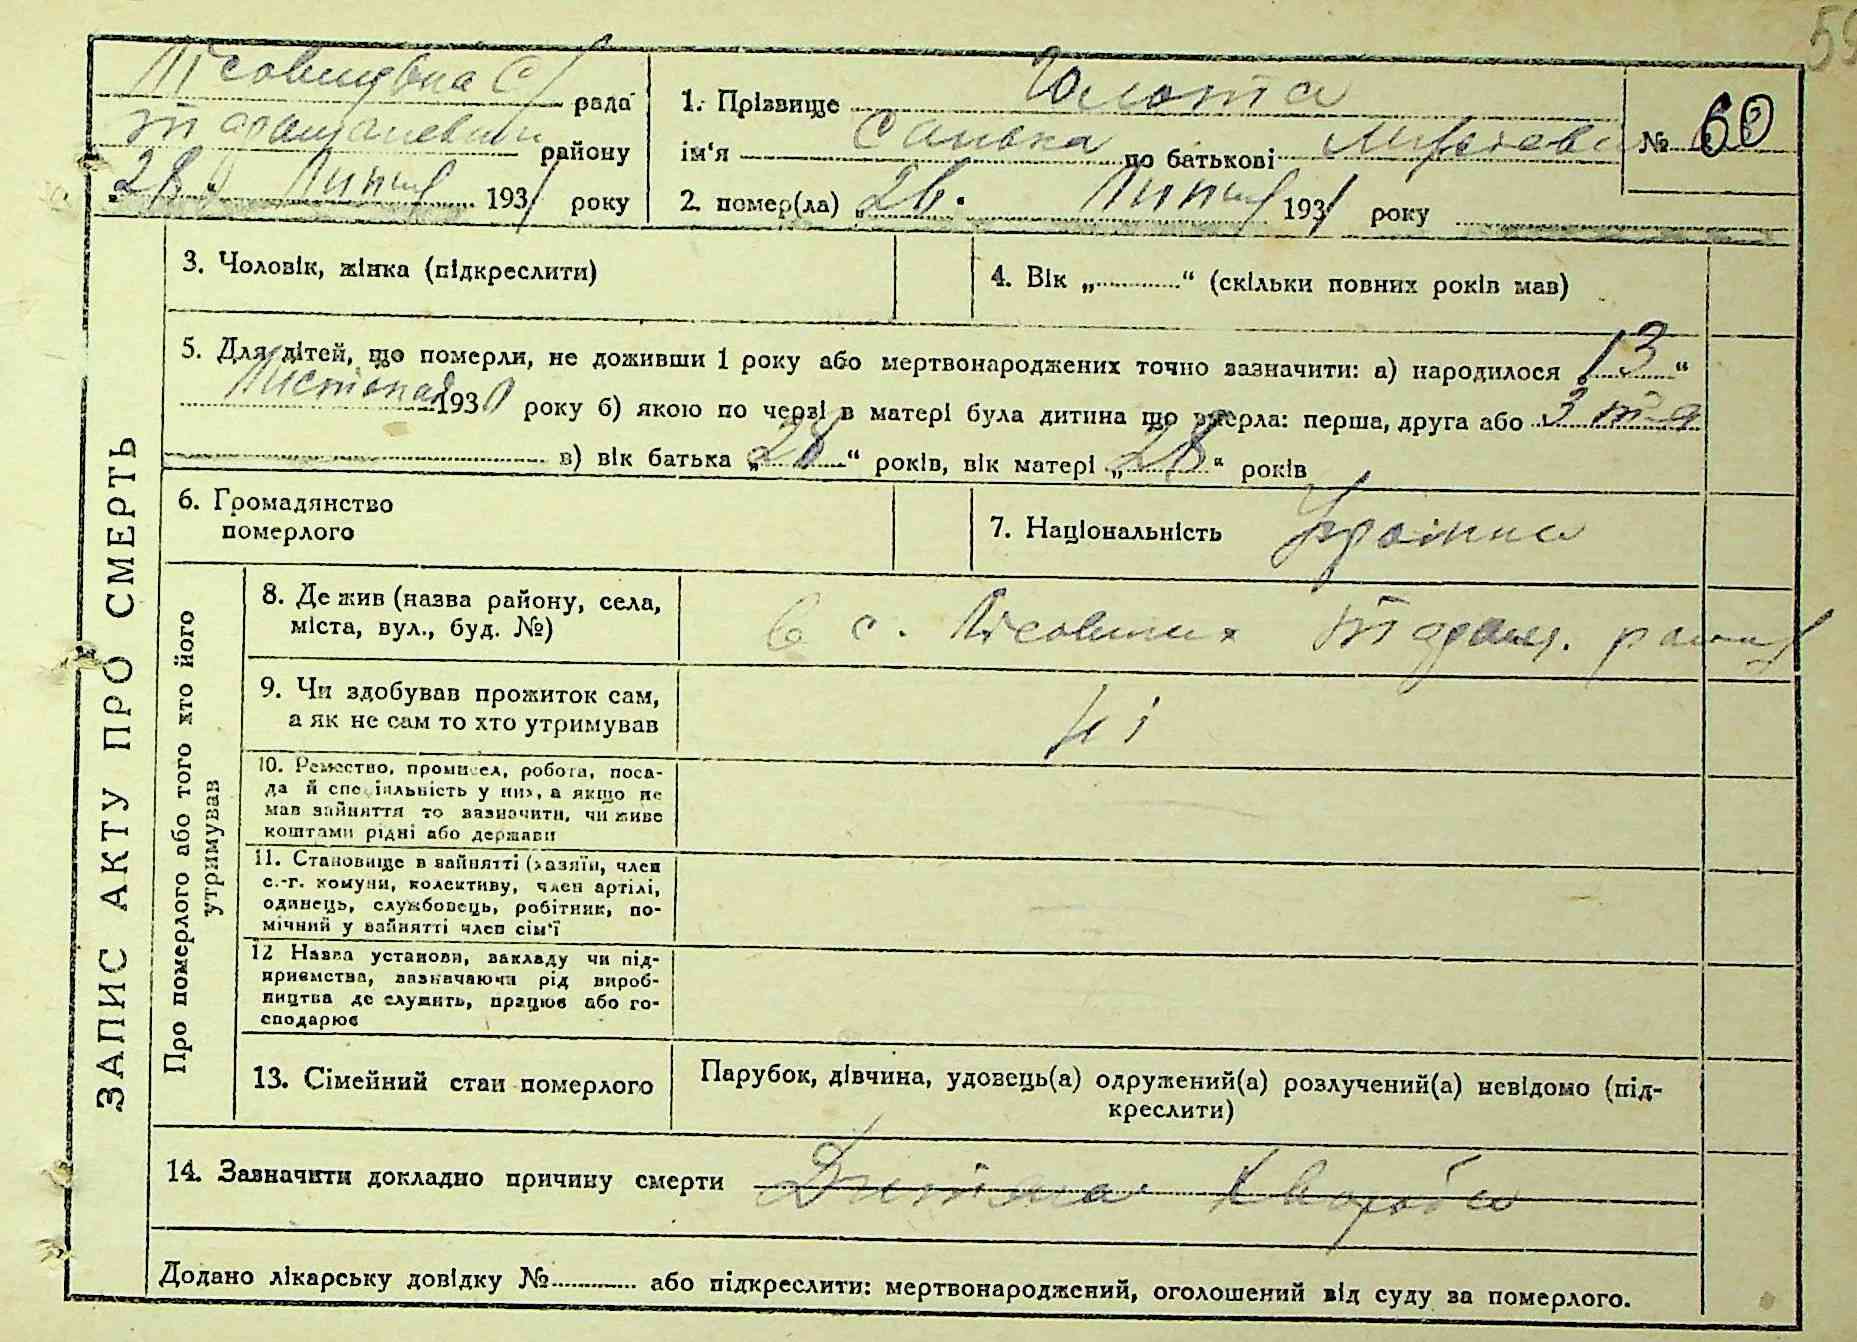 Лісовицька с/ рада
Таращанський району
„28“ Липня 1931 року
1. Прізвище Голота
ім'я Санька по батькові
2. помер(ла) „26“ Липня 1931 року
№ 60
59
ЗАПИС АКТУ ПРО СМЕРТЬ
3. Чоловік, жінка (підкреслити)
4. Вік „............“ (скільки повних років мав)
5. Для дітей, що померли, не доживши 1 року або мертвонароджених точно зазначити: а) народилося „13“
Листопада 1930 року б) якою по черзі в матері була дитина що вмерла: перша, друга або 3 тя
в) вік батька „28“ років, вік матері „28“ років
6. Громадянство
померлого
7. Національність Українка
Про померлого або того хто його
утримував
8. Де жив (назва району, села,
міста, вул., буд. №)
в с. Лісовичах Таращ. району
9. Чи здобував прожиток сам,
а як не сам то хто утримував
Ні
10. Ремество, промисел, робота, поса-
да й спеціяльність у них, а якщо не
мав зайняття то зазначити, чи живе
коштами рідні або держави
11. Становище в зайнятті (хазяїн, член
с.-г. комуни, колективу, член артілі,
одинець, службовець, робітник, по-
мічний у зайнятті член сім'ї
12 Назва установи, закладу чи під-
приємства, зазначаючи рід вироб-
ництва де служить, працює або го-
сподарює
13. Сімейний стан померлого
Парубок, дівчина, удовець(а) одружений(а) розлучений(а) невідомо (під-
креслити)
14. Зазначити докладно причину смерти Дитяча хвороба
Додано лікарську довідку №............ або підкреслити: мертвонароджений, оголошений від суду за померлого.